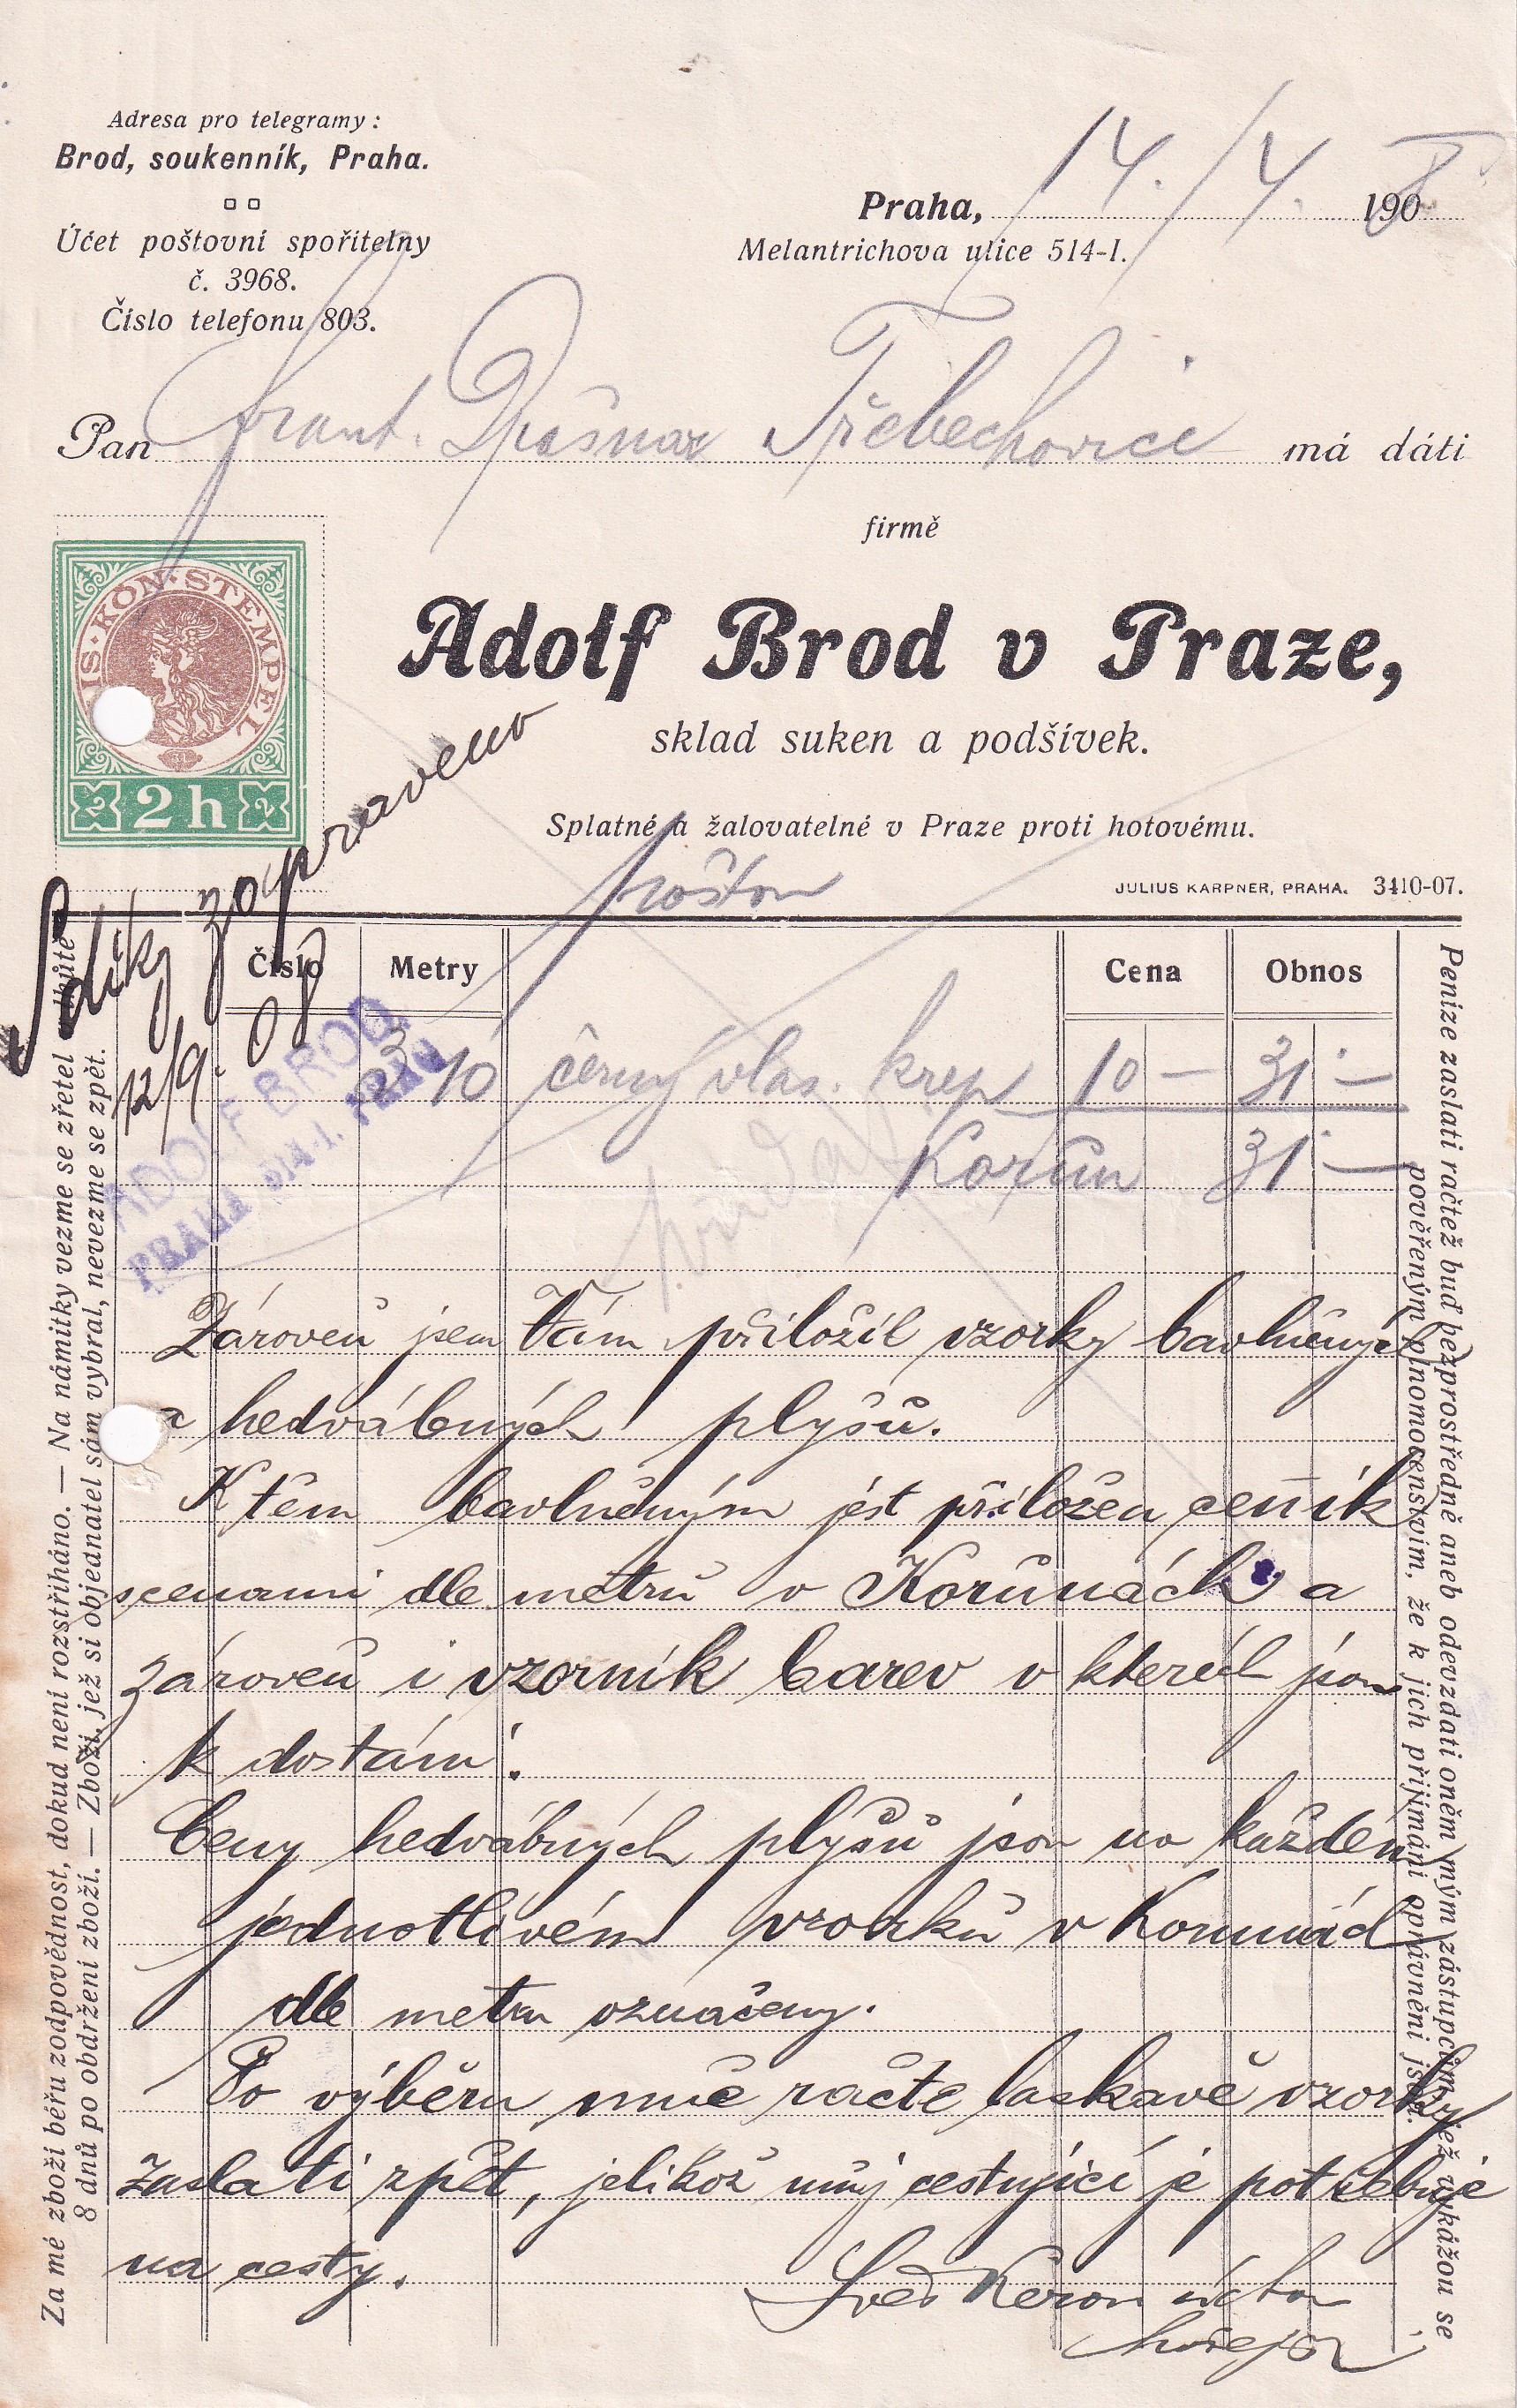 Adresa pro telegramy:
Brod, soukenník, Praha.
Účet poštovní spořitelny
č. 3968.
Číslo telefonu 803.
Praha, 14./4. 1908
Melantrichova ulice 514-I.
Pan Frant. Třebechovice má dáti
firmě
Adolf Brod v Praze,
sklad suken a podšívek.
Splatné a žalovatelné v Praze proti hotovému.
poštou
JULIUS KARPNER, PRAHA. 3410-07.
IS·KÖN·STEMPEL
2 2h 2
S díky zapraveno
12/9. 08
ADOLF BROD,
PRAHA 514-I. PRAG
Číslo Metry Cena Obnos
3 10 černý vlas. krep 10 — 31 —
Korun 31 —
Zároveň jsem Vám přiložil vzorky bavlněných
a hedvábných plyšů.
K těm bavlněným jest přiložen ceník
s cenami dle metrů v Korunách a
zároveň i vzorník barev v kterých jsou
k dostání.
Ceny hedvábných plyšů jsou na každém
jednotlivém vzorku v Korunách
dle metru označeny.
Po výběru mně račte laskavě vzorky
zaslati zpět, jelikož můj cestující je potřebuje
na cesty.
Za mé zboží béřu zodpovědnost, dokud není rozstříháno. — Na námitky vezme se zřetel lhůtě
8 dnů po obdržení zboží. — Zboží, jež si objednatel sám vybral, nevezme se zpět.
Peníze zaslati račtež buď bezprostředně aneb odevzdati oněm mým zástupcům, jež vykážou se
pověřeným plnomocenstvím, že k jich přijímání oprávněni jsou.